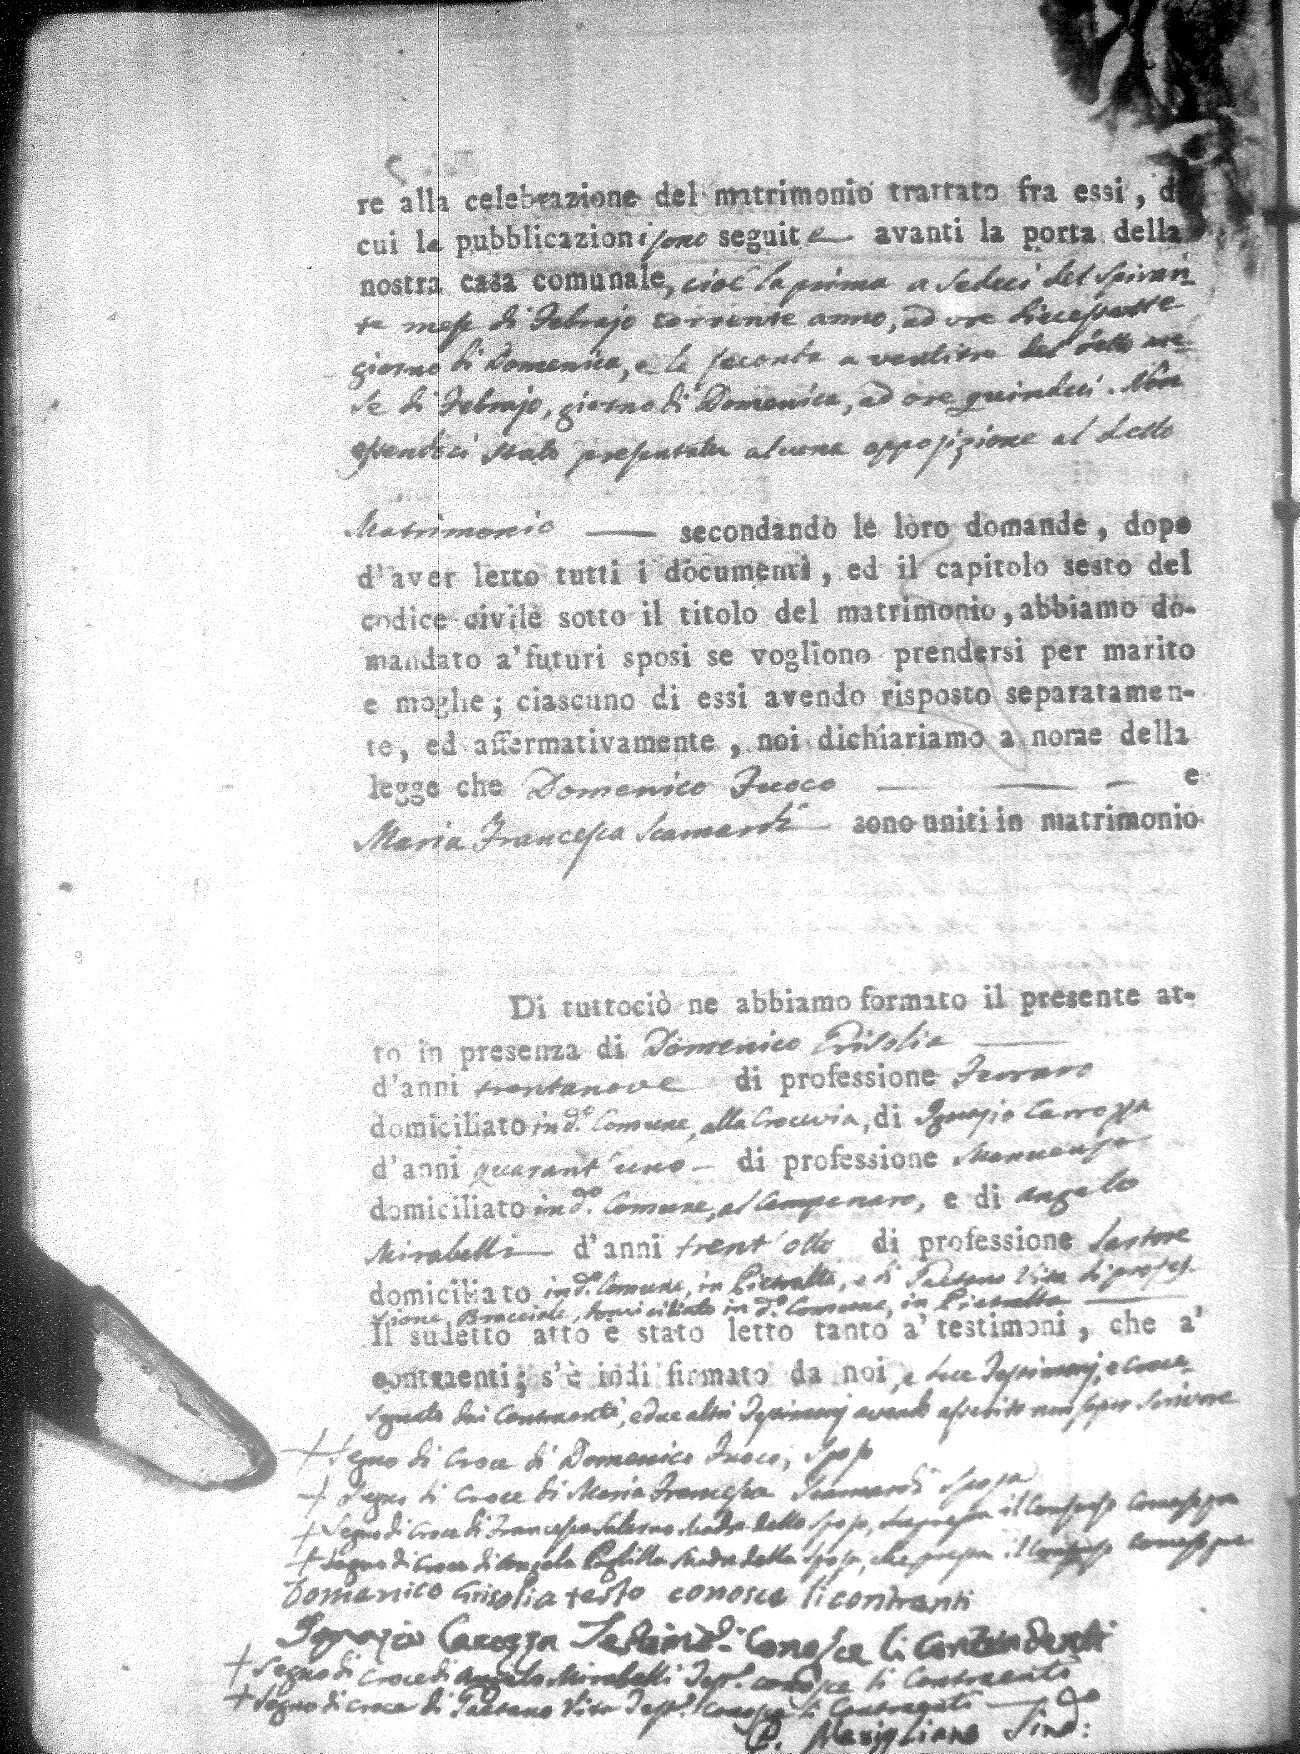 re alla celebrazione del matrimonio trattato fra essi, di
cui le pubblicazioni sono seguite avanti la porta della
nostra casa comunale, cioè la prima a sedeci del spiran
te mese di Febrajo corrente anno, ad ore diecessette
giorno di Domenica, e la seconda a ventitre del detto me-
se di Febrajo, giorno di Domenica, ad ore quindeci. Non
essendoci stata presentata alcuna opposizione al detto
Matrimonio secondando le loro domande, dopo
d'aver letto tutti i documenti, ed il capitolo sesto del
codice civile sotto il titolo del matrimonio, abbiamo do-
mandato a' futuri sposi se vogliono prendersi per marito
e moglie; ciascuno di essi avendo risposto separatamen-
te, ed affermativamente, noi dichiariamo a nome della
legge che Domenico Fuoco e
Maria Francesca Scamardi sono uniti in matrimonio
Di tuttociò ne abbiamo formato il presente at-
to in presenza di Domenico Grisolia
d'anni trentanove di professione Ferraro
domiciliato in d.º Comune, alla Crocivia, di Ignazio Carrozza
d'anni quarant'uno di professione
domiciliato in d.º Comune, al Campanaro, e di Angelo
Mirabelli d'anni trent'otto di professione Sartore
domiciliato in d.º Comune, in Pietralta, e di Gaetano Vita di profes-
sione Bracciale, domiciliato in d.º Comune, in Pietralta
Il sudetto atto è stato letto tanto a' testimoni, che a'
contraenti; s'è indi firmato da noi, e due Testimonj, e croce
segnato dai Contraenti, e due altri Testimonj avendo asserito non saper scrivere
+ Segno di Croce di Domenico Fuoco, Sposo
+ Segno di Croce di Maria Francesca Scamardi Sposa
+ Segno di Croce di Francesca Salerno Madre dello sposo, che presta il Consenso
+ Segno di Croce di Angela Madre della sposa, che presta il Consenso
Domenico Grisolia testo conosce li contranti
Ignazio Carozza Testimo: Conosce li Contraendenti
+ Segno di Croce di Angelo Mirabelli Test. conosce li Contraenti
+ Segno di Croce di Gaetano Vita Test. Conosce li Contraenti
Marigliano Sind: